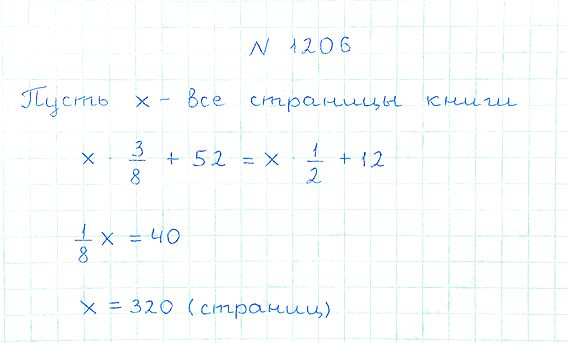 N 1206
Пусть x - все страницы книги
x · 3/8 + 52 = x · 1/2 + 12
1/8 x = 40
x = 320 (страниц)